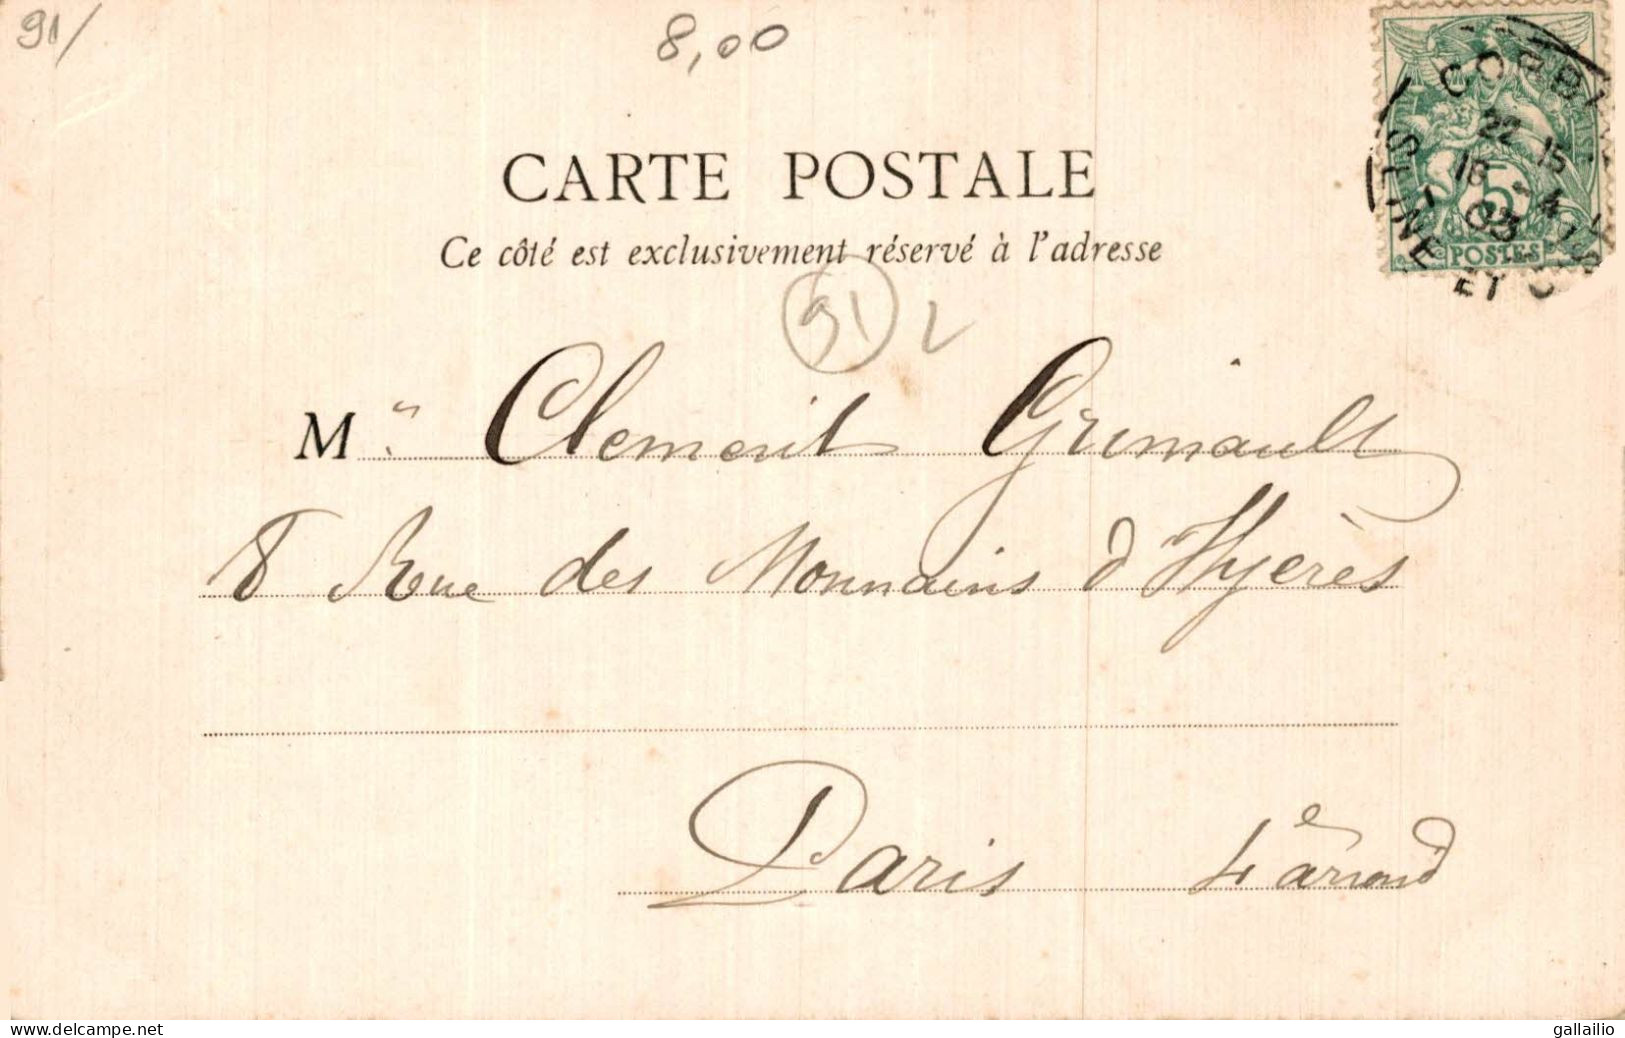 91/
8,00
CARTE POSTALE
Ce côté est exclusivement réservé à l'adresse
91 L
M. Clement Grimault
8 Rue des Nonnains d'Hyères
Paris 4è arrond
POSTES
5
22 15
18 -4
03
SEINE ET O
delcampe.net
gallailio